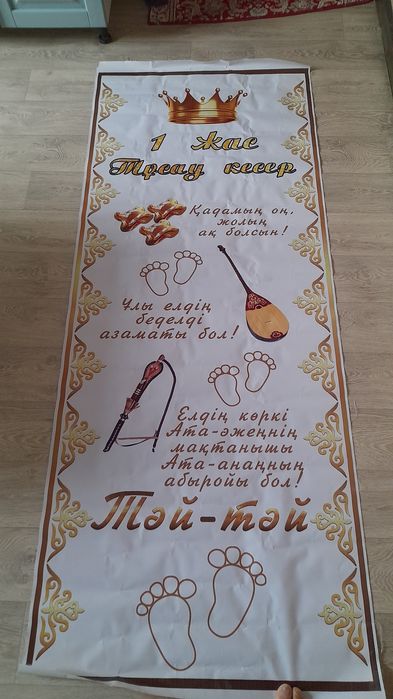 1 жас
Тұсау кесер
Қадамың оң,
жолың
ақ болсын!
Ұлы елдің
беделді
азаматы бол!
Елдің көркі
Ата-әжеңнің
мақтанышы
Ата-ананың
абыройы бол!
Тәй-тәй